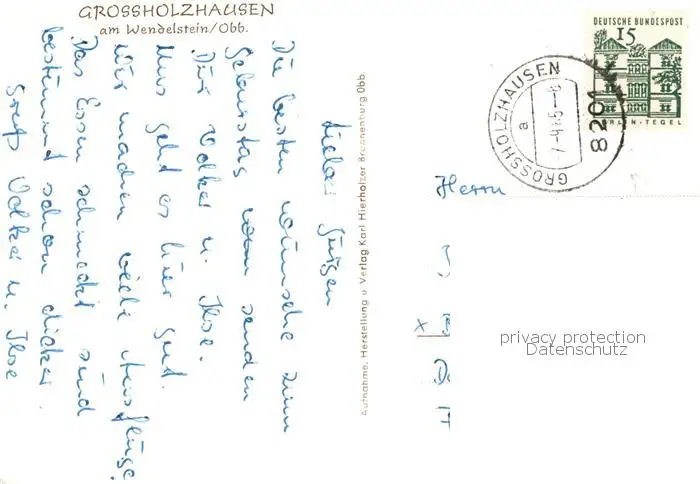 GROSSHOLZHAUSEN
am Wendelstein/Obb.
Lieber Jürgen
Die besten Wünsche zum
Geburtstag senden
Dir Volker u. Ilse.
Uns geht es hier gut.
Wir machen viele Ausflüge.
Das Essen schmeckt sind
bestimmt schon dicker.
Gruß Volker u. Ilse
Aufnahme, Herstellung u. Verlag Karl Hierholzer Brannenburg Obb.
DEUTSCHE BUNDESPOST
15
BERLIN-TEGEL
8201 GROSSHOLZHAUSEN
a
Herrn
privacy protection
Datenschutz